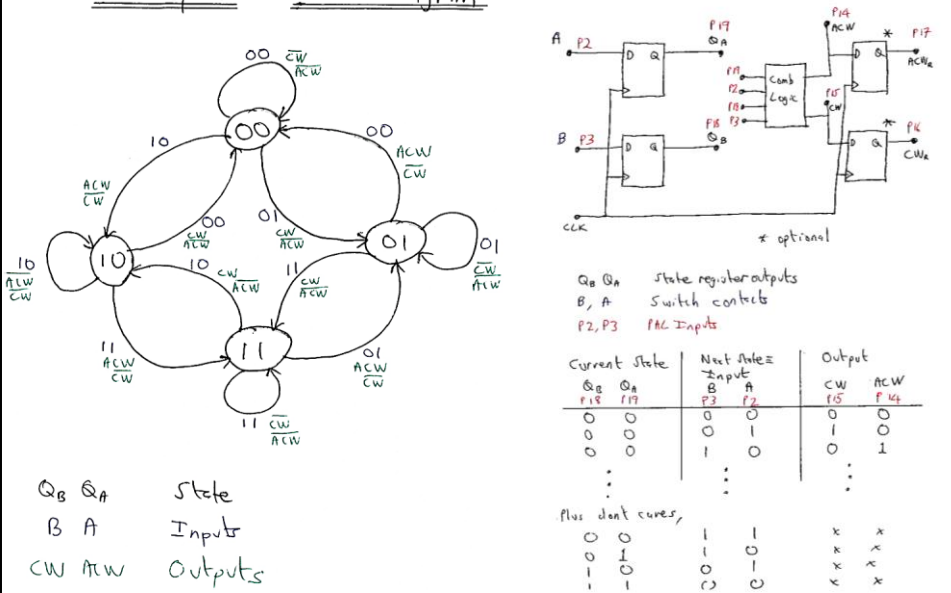 00 C̅W̅
A̅C̅W̅
00
10
00
ACW
C̅W̅
ACW
C̅W̅
00
CW
A̅C̅W̅
01
CW
A̅C̅W̅
01
10
10
A̅C̅W̅
C̅W̅
10 CW
A̅C̅W̅
11
CW
A̅C̅W̅
01
C̅W̅
A̅C̅W̅
11
ACW
C̅W̅
11
01
ACW
C̅W̅
11 C̅W̅
A̅C̅W̅
QB QA State
B A Inputs
CW ACW Outputs
A P2 D Q P19
QA
B P3 D Q P18
QB
CLK
P19
P2
P18
P3
Comb
Logic
P14
ACW
P15
CW
D Q * P17
ACWR
D Q * P16
CWR
* optional
QB QA State register outputs
B, A Switch contacts
P2, P3 PAL Inputs
Current State Next State ≡ Input Output
QB QA B A CW ACW
P18 P19 P3 P2 P15 P14
0 0 0 0 0 0
0 0 0 1 1 0
0 0 1 0 0 1
Plus dont cares,
0 0 1 1 x x
0 1 1 0 x x
1 0 0 1 x x
1 1 0 0 x x